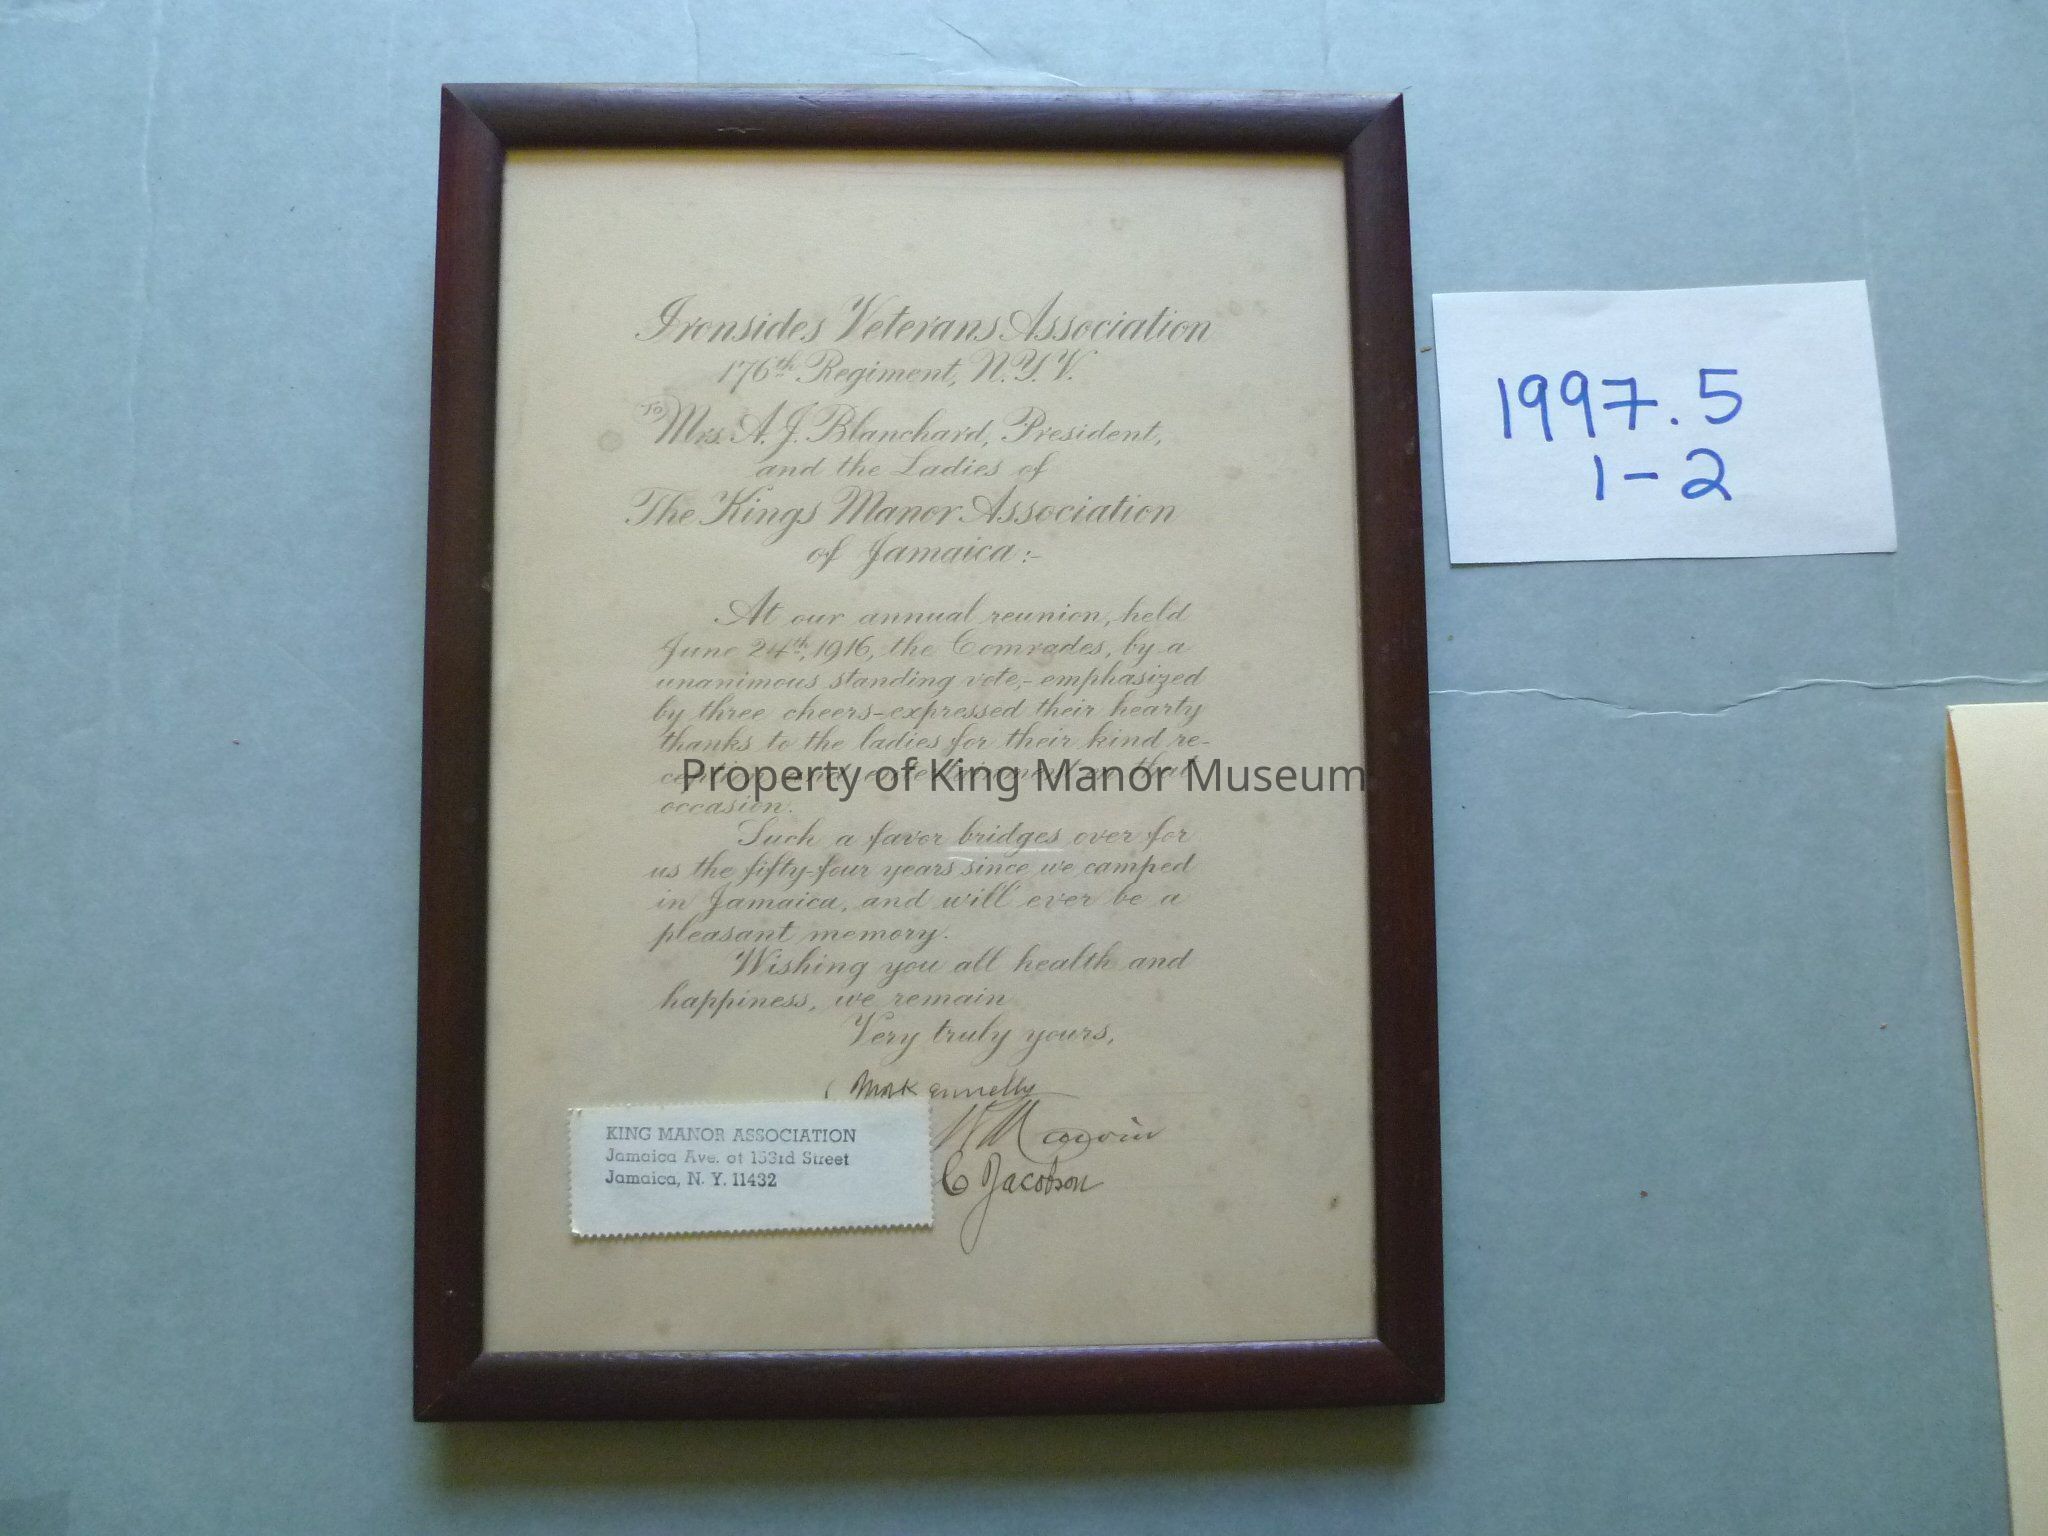 Ironsides Veterans Association
176th Regiment, N.Y.V.
To Mrs. A. J. Blanchard, President,
and the Ladies of
The Kings Manor Association
of Jamaica:-
At our annual reunion, held
June 24th, 1916, the Comrades, by a
unanimous standing vote,- emphasized
by three cheers-expressed their hearty
thanks to the ladies for their kind re-
ception and entertainment on that
occasion.
Such a favor bridges over for
us the fifty-four years since we camped
in Jamaica, and will ever be a
pleasant memory.
Wishing you all health and
happiness, we remain
Very truly yours,
C Jacobson
KING MANOR ASSOCIATION
Jamaica Ave. at 153rd Street
Jamaica, N. Y. 11432
Property of King Manor Museum
1997.5
1-2